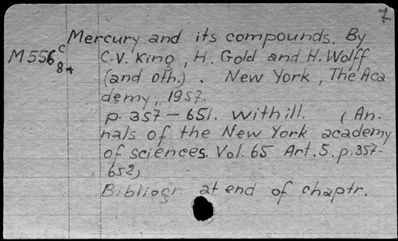 7
Mercury and its compounds. By
M556c C.V. King, H. Gold and H. Wolff
8+ (and oth.). New York, The Aca
demy, 1957.
p. 357-651. with ill. (An-
nals of the New York academy
of sciences. Vol. 65 Art. 5. p. 357-
652)
Bibliogr. at end of chaptr.